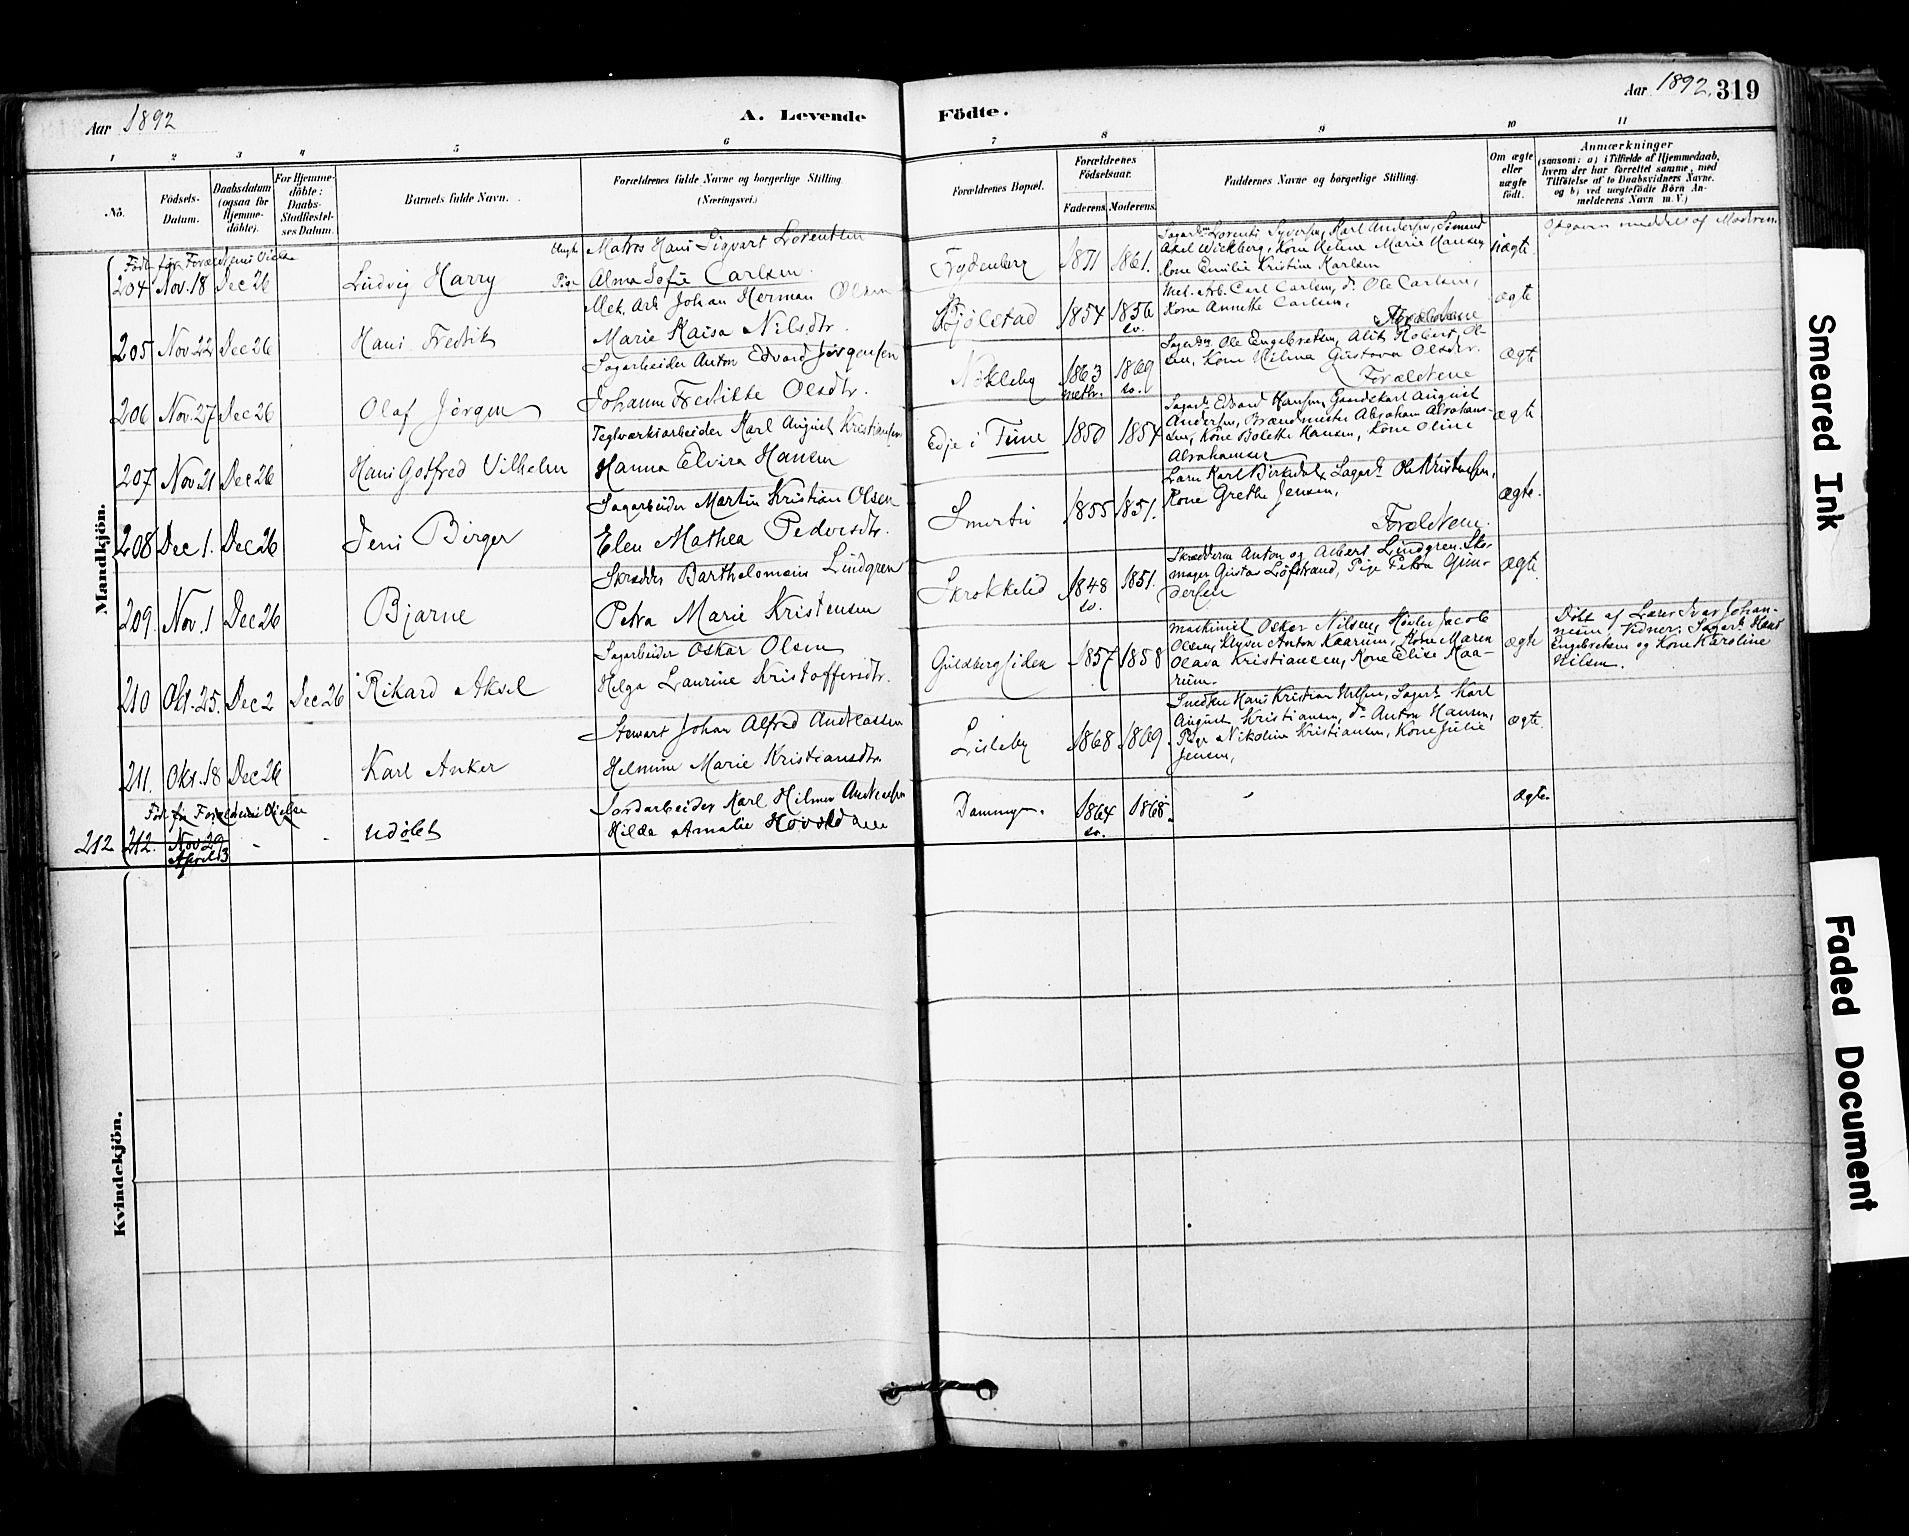 Aar 1892
A. Levende
Födte.
Aar 1892.
319
1 2 3 4 5 6 7 8 9 10 11
No.
Födsels-
Datum.
Daabsdatum
(ogsaa for
Hjemme-
döbte).
For Hjemme-
döbte:
Daabs-
Stadfæstel-
ses Datum.
Barnets fulde Navn.
Forældrenes fulde Navne og borgerlige Stilling
(Næringsvei.)
Forældrenes Bopæl.
Forældrenes
Födselsaar.
Faderens. Moderens.
Faddernes Navne og borgerlige Stilling.
Om ægte
eller
uægte
födt.
Anmærkninger
(saasom: a) i Tilfælde af Hjemmedaab,
hvem der har forrettet samme, med
Tilföielse af to Daabsvidners Navne.
og b) ved uægtefödte Börn An-
melderens Navn m. V.)
Mandkjön.
Født før Forældrenes Vielse
204 Nov. 18 Dec 26
Ludvig Harry
Ungk. Matros Hans Sigvart Lorentsen
Pige Alma Sofie Carlsen
1871 1861.
Kone Emilie Kristine Karlsen
uægte
Opgaven meddelt af Moderen.
205 Nov 22 Dec 26
Hans Fredrik
Mek. Arb. Johan Herman Olsen
Marie Kaisa Nilsdtr.
Kjølstad
1854 1856
sv.
Mek. Arb. Carl Carlsen, do Ole Carlsen,
Kone Annette Carlsen,
Forældrene
ægte
206 Nov. 27 Dec 26
Olaf Jørgen
Sagarbeider Anton Edvard Jørgensen
Johanne Fredrikke Olsdtr.
Nøkleby
1863 1869
meth. sv.
Forældrene
ægte
207 Nov. 21 Dec 26
Hans Gotfred Vilhelm
Teglværksarbeider Karl August Kristiansen
Hanna Elvira Hansen
Edje i Tune
1850 1854
Sagarb. Edvard Hansen, Gaardskarl August
Andersen, Brændmester Abraham Abrahams-
sen, Kone Bolette Hansen, Kone Oline
Abrahamsen
ægte
208 Dec 1. Dec 26
Jens Birger
Sagarbeider Martin Kristian Olsen
Elen Mathea Pedersdtr.
Smertu
1855 1851.
Kone Grethe Jensen,
Forældrene.
ægte.
209. Nov. 1 Dec 26
Bjarne
Skrædder Bartholomæus Lindgren
Petra Marie Kristensen
Skrokkelid
1848 1851.
sv.
Skrædderne Anton og Albert Lindgren. Sko-
mager Gustav Löfstrand, Pige Petra Gun-
dersen
ægte.
210 Okt. 25. Dec 2 Dec 26
Rikard Aksel
Sagarbeider Oskar Olsen
Helga Laurine Kristoffersdtr.
Guldbergsiden
1857 1858
Maskinist Oskar Nilsen, Høvler Jacob
Olsen, Slyver Anton Kaarum, Kone Maren
Olava Kristiansen, Kone Elise Kaa-
rum.
ægte
Döbt af Lærer Ivar Johan-
nesen, Vidner: Sagarb. Hans
Engebretsen og Kone Karoline
Nilsen.
211. Okt. 18 Dec 26
Karl Anker
Stewart Johan Alfred Andreassen
Helmine Marie Kristiansdtr.
Lisleby
1868 1869.
Smedsv. Hans Kristian Nilsen, Sagarb. Karl
August Kristiansen, do Anton Hansen,
Pige Nikoline Kristiansen, Kone Julie
Jensen,
ægte.
Født før Forældrenes Vielse
212 212. Nov 29
April 13
udøbt
Jordarbeider Karl Hilmer Andersen
Hilda Amalie
Dammyr.
1864 1868.
sv.
ægte.
Kvindekjön.
Smeared Ink
Faded Document